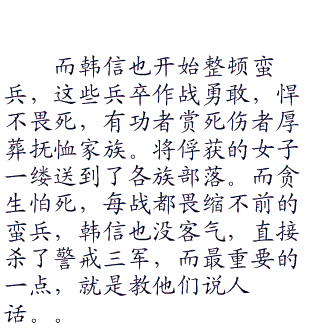 而韩信也开始整顿蛮
兵，这些兵卒作战勇敢，悍
不畏死，有功者赏死伤者厚
葬抚恤家族。将俘获的女子
一缕送到了各族部落。而贪
生怕死，每战都畏缩不前的
蛮兵，韩信也没客气，直接
杀了警戒三军，而最重要的
一点，就是教他们说人
话。。